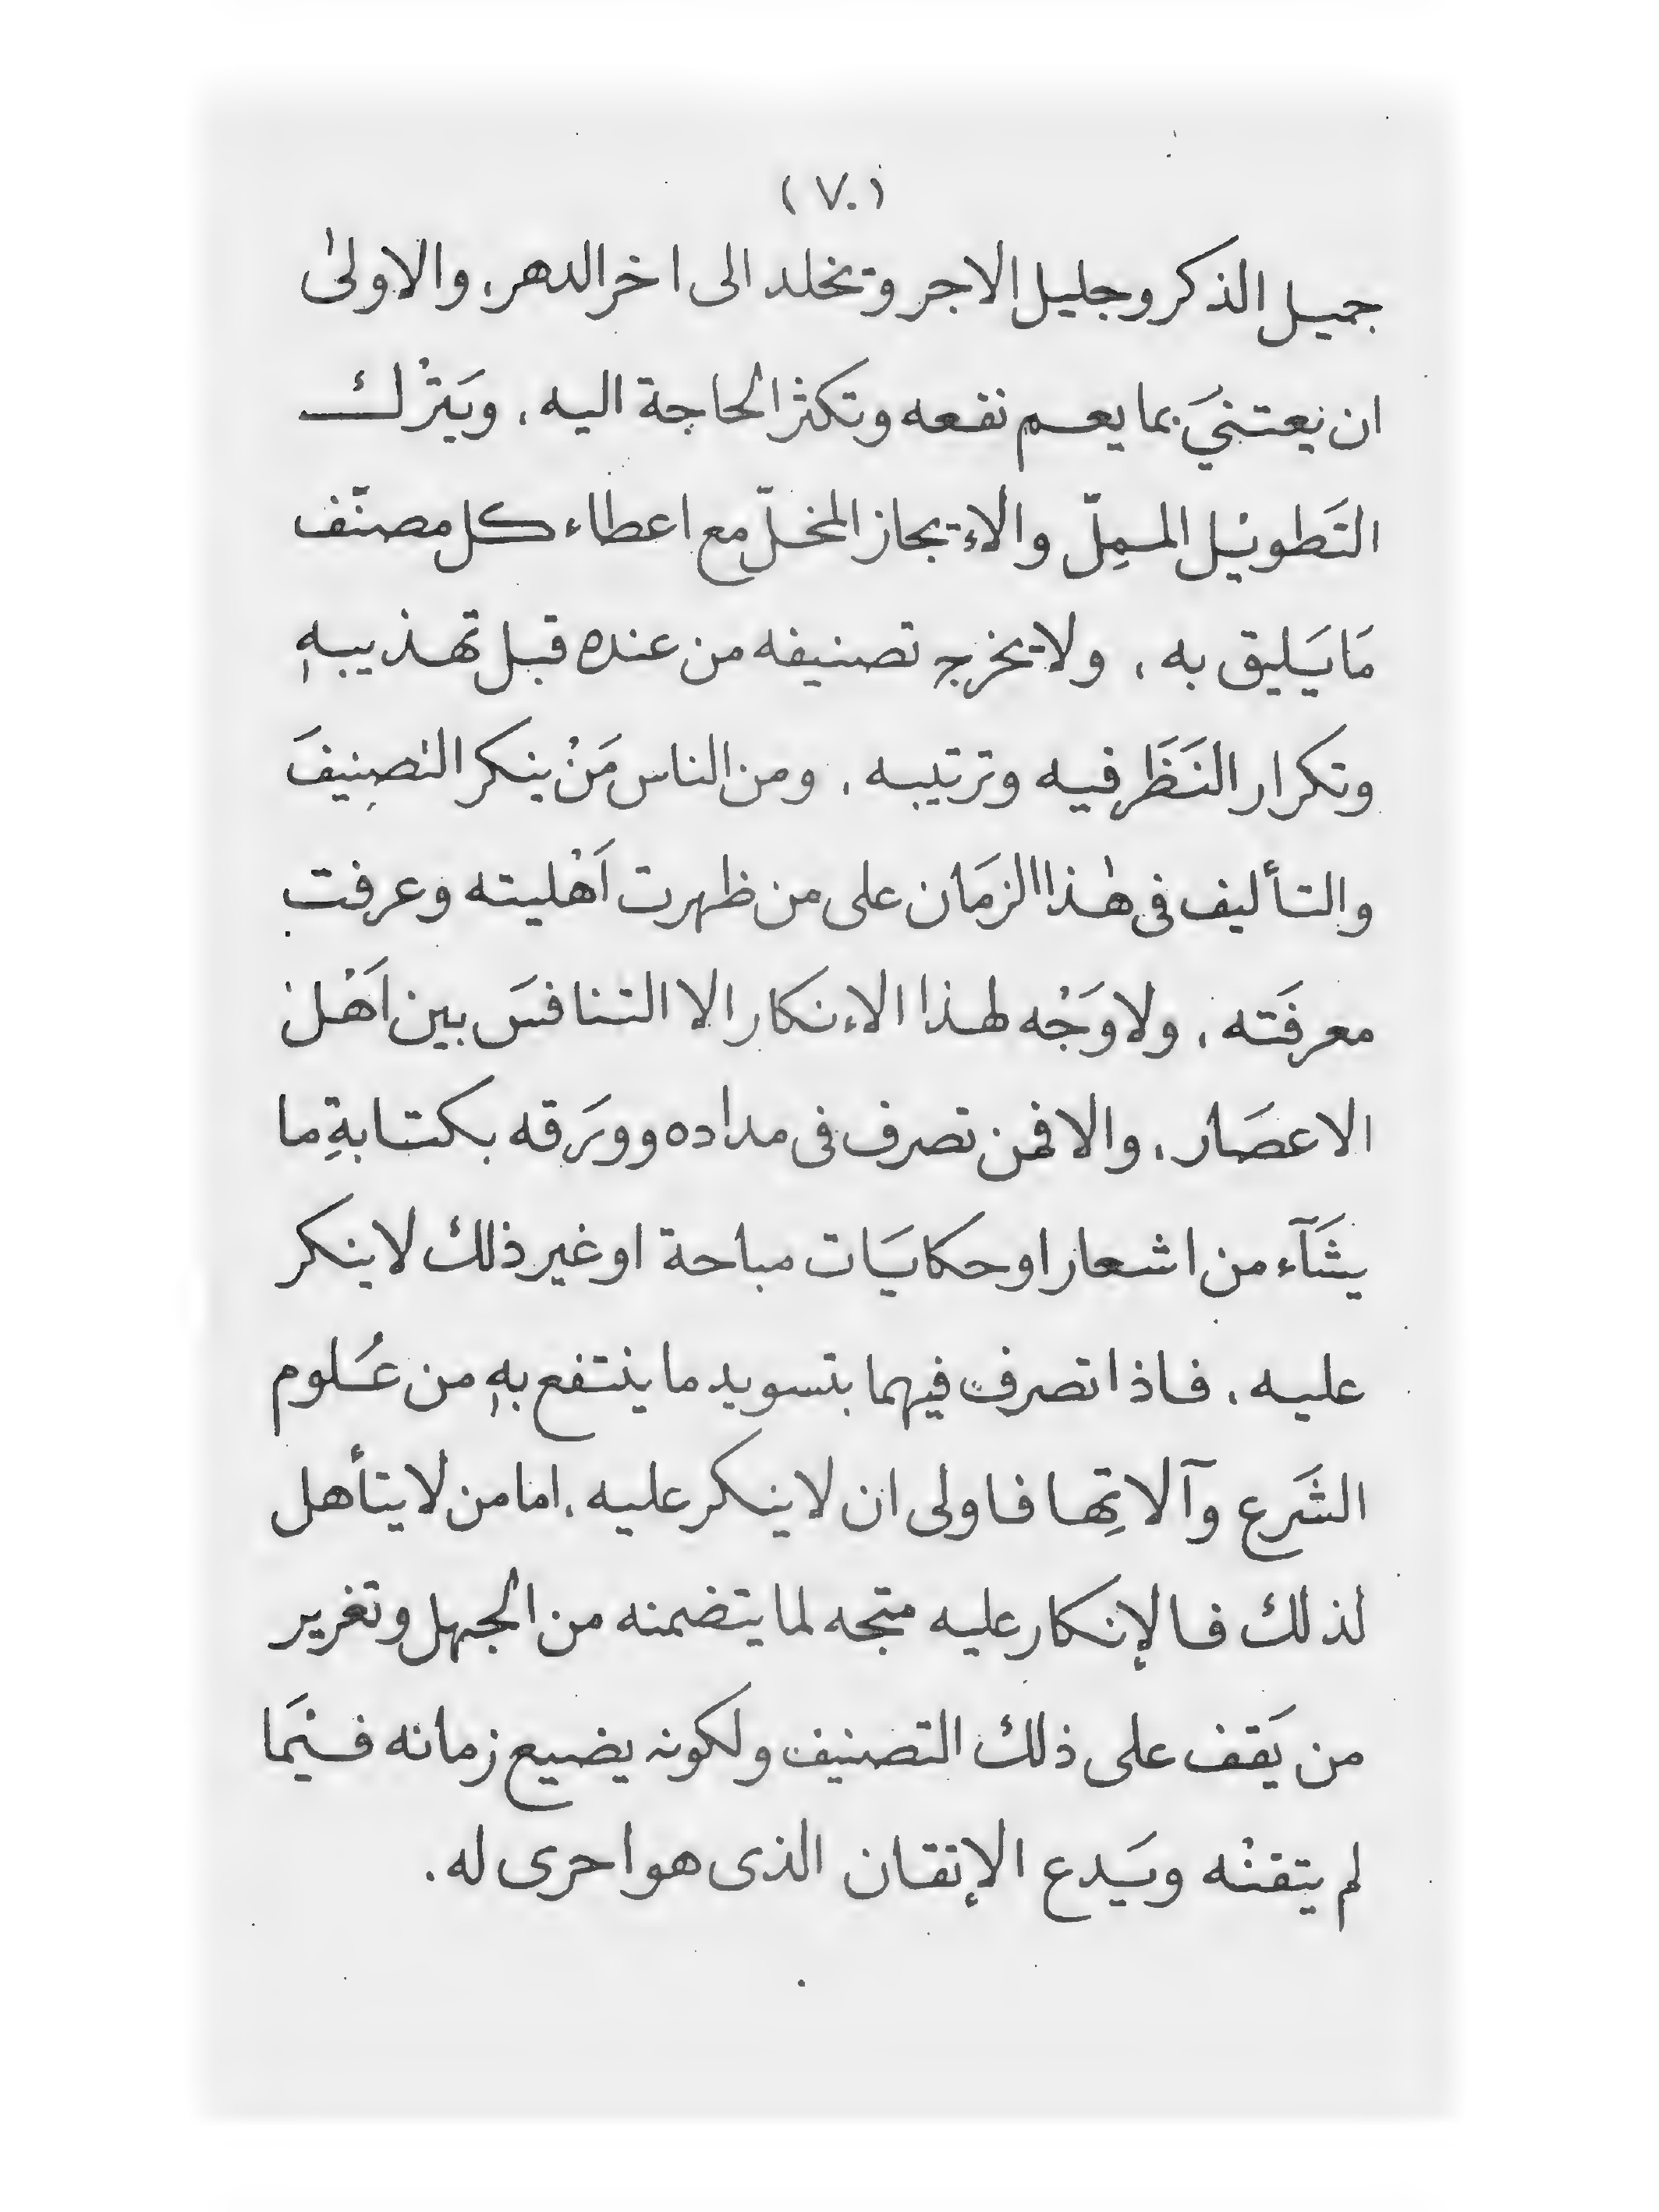 (٧٠)
جميل الذكر وجليل الاجر وتخلد الى اخر الدهر، والاولىٰ
ان يعتنيَ بما يعم نفعه وتكثر الحاجة اليه، ويَترْك
التَطويْل الممِلّ والاءيجاز المخلّ مع اعطاء كل مصنّف
مَا يَليق به، ولا يخرج تصنيفه من عنده قبل تهذيبهٖ
وتكرار النَظَر فيه وترتيبه، ومن الناس مَنْ ينكر التصنِيفَ
والتأليف فى هٰذا الزمَان على من ظهرت اَهْليته وعرفت
معرفَته، ولا وَجْه لهذا الاءنكار الا التنافسَ بين اَهْل
الاعصَار، والا فمن تصرف فى مداده ووَرَقه بكتابةِ ما
يشَآء من اشعار او حكايَات مباحة او غير ذلك لا ينكر
عليه، فاذا تصرف فيهما بتسويد ما ينتفع بهٖ من عُلوم
الشَرع وآلاتِها فاولى ان لا ينكر عليه، اما من لا يتأهل
لذلك فالإنكار عليه متجه لما يتضمنه من الجهل وتغرير
من يَقف على ذلك التصنيف ولكونه يضيع زمانه فيْمَا
لم يتقنْه ويَدع الإتقان الذى هو احرى له.